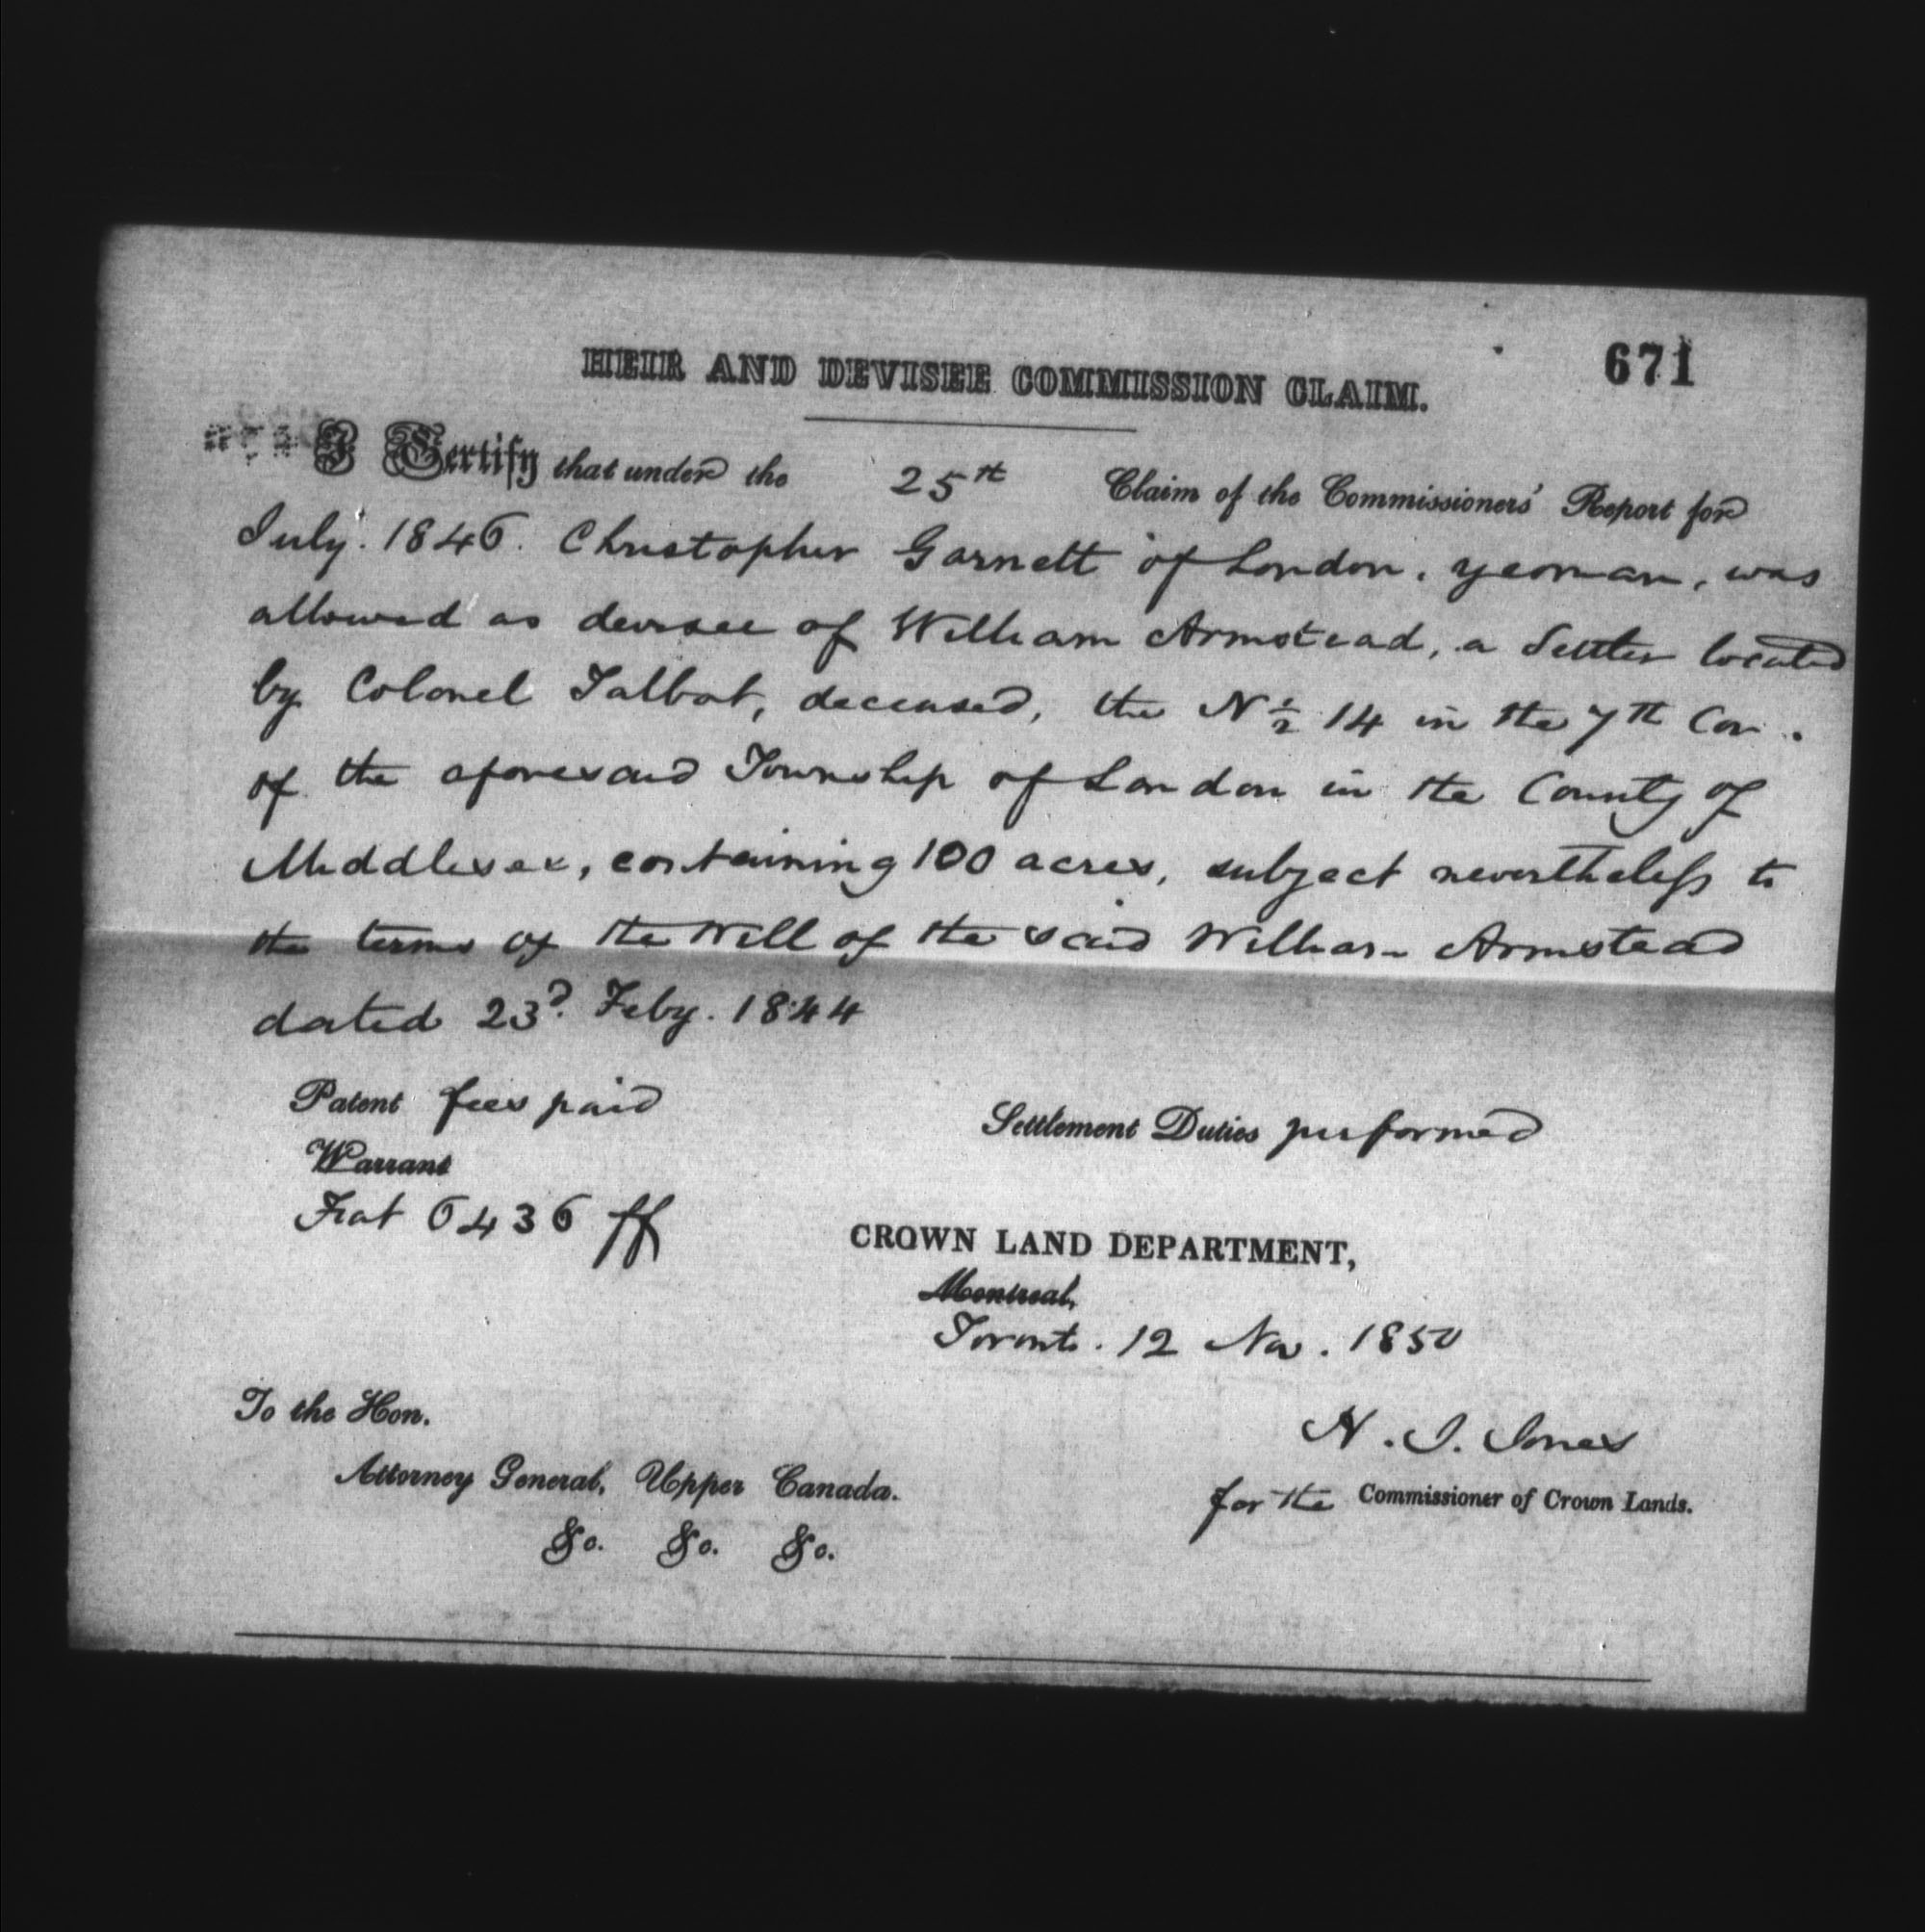 671
HEIR AND DEVISEE COMMISSION CLAIM.
I Certify that under the 25th Claim of the Commissioners' Report for
July. 1846. Christopher Garnett of London, yeoman, was
allowed as devisee of William Armstead, a Settler located
by Colonel Talbot, deceased, the N ½ 14 in the 7th Con.
of the aforesaid Township of London in the County of
Middlesex, containing 100 acres, subject nevertheless to
the terms of the Will of the said William Armstead
dated 23d. Feby. 1844
Patent fees paid
Settlement Duties performed
Warrant
Fiat 6436 ff
CROWN LAND DEPARTMENT,
Montreal,
Toronto. 12 Nov. 1850
To the Hon.
N. J. Jones
Attorney General, Upper Canada.
for the Commissioner of Crown Lands.
&c. &c. &c.